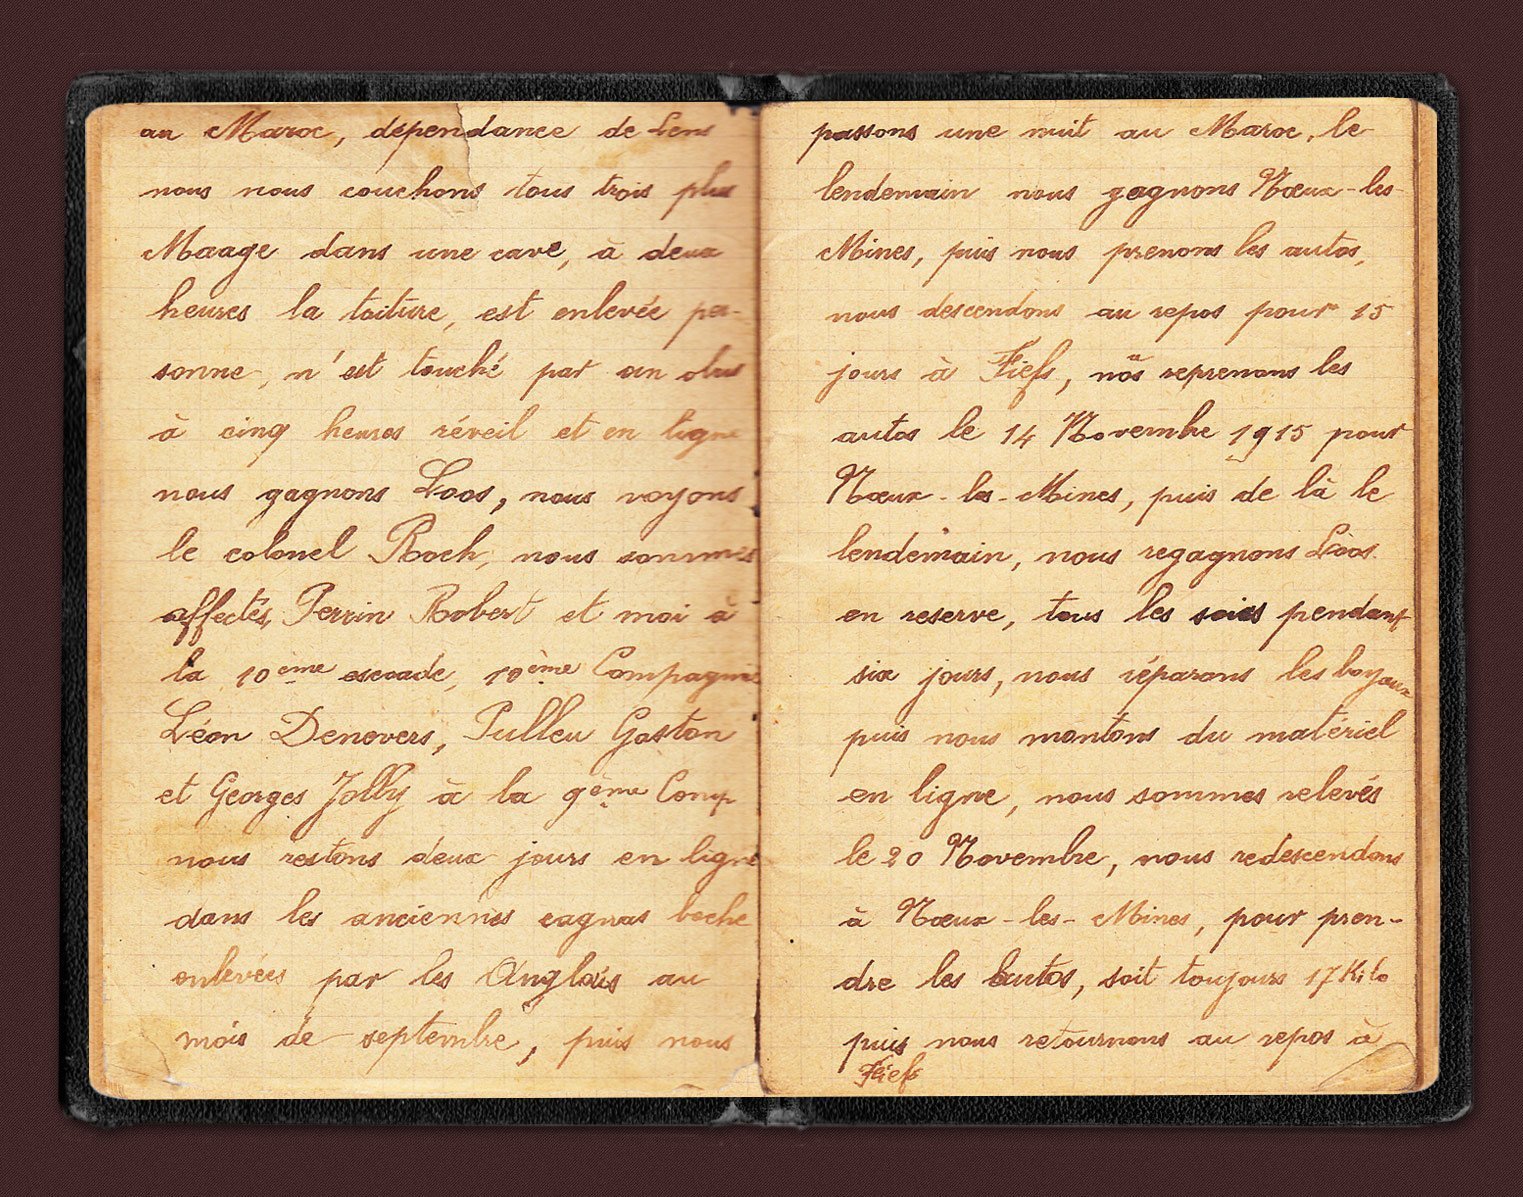 au Maroc, dépendance de Lens
nous nous couchons tous trois plus
Maage dans une cave, à deux
heures la toiture, est enlevée per-
sonne, n'est touché par un obus
à cinq heures réveil et en ligne
nous gagnons Loos, nous voyons
le colonel Roch, nous sommes
affectés, Perrin Robert et moi à
la 10ème escouade, 10ème Compagnie
Léon Denevers, Pulleu Gaston
et Georges Jolly à la 9ème Comp
nous restons deux jours en ligne
dans les anciennes cagnas boche
enlevées par les Anglais au
mois de septembre, puis nous
passons une nuit au Maroc, le
lendemain nous gagnons Nœux-les-
Mines, puis nous prenons les autos,
nous descendons au repos pour 15
jours à Fiefs, nõs reprenons les
autos le 14 Novembre 1915 pour
Nœux-les-Mines, puis de là le
lendemain, nous regagnons Loos.
en reserve, tous les soirs pendant
six jours, nous réparons les boyaux
puis nous montons du matériel
en ligne, nous sommes relevés
le 20 Novembre, nous redescendons
à Nœux-les-Mines, pour pren-
dre les autos, soit toujours 17 Kilo
puis nous retournons au repos à
Fiefs